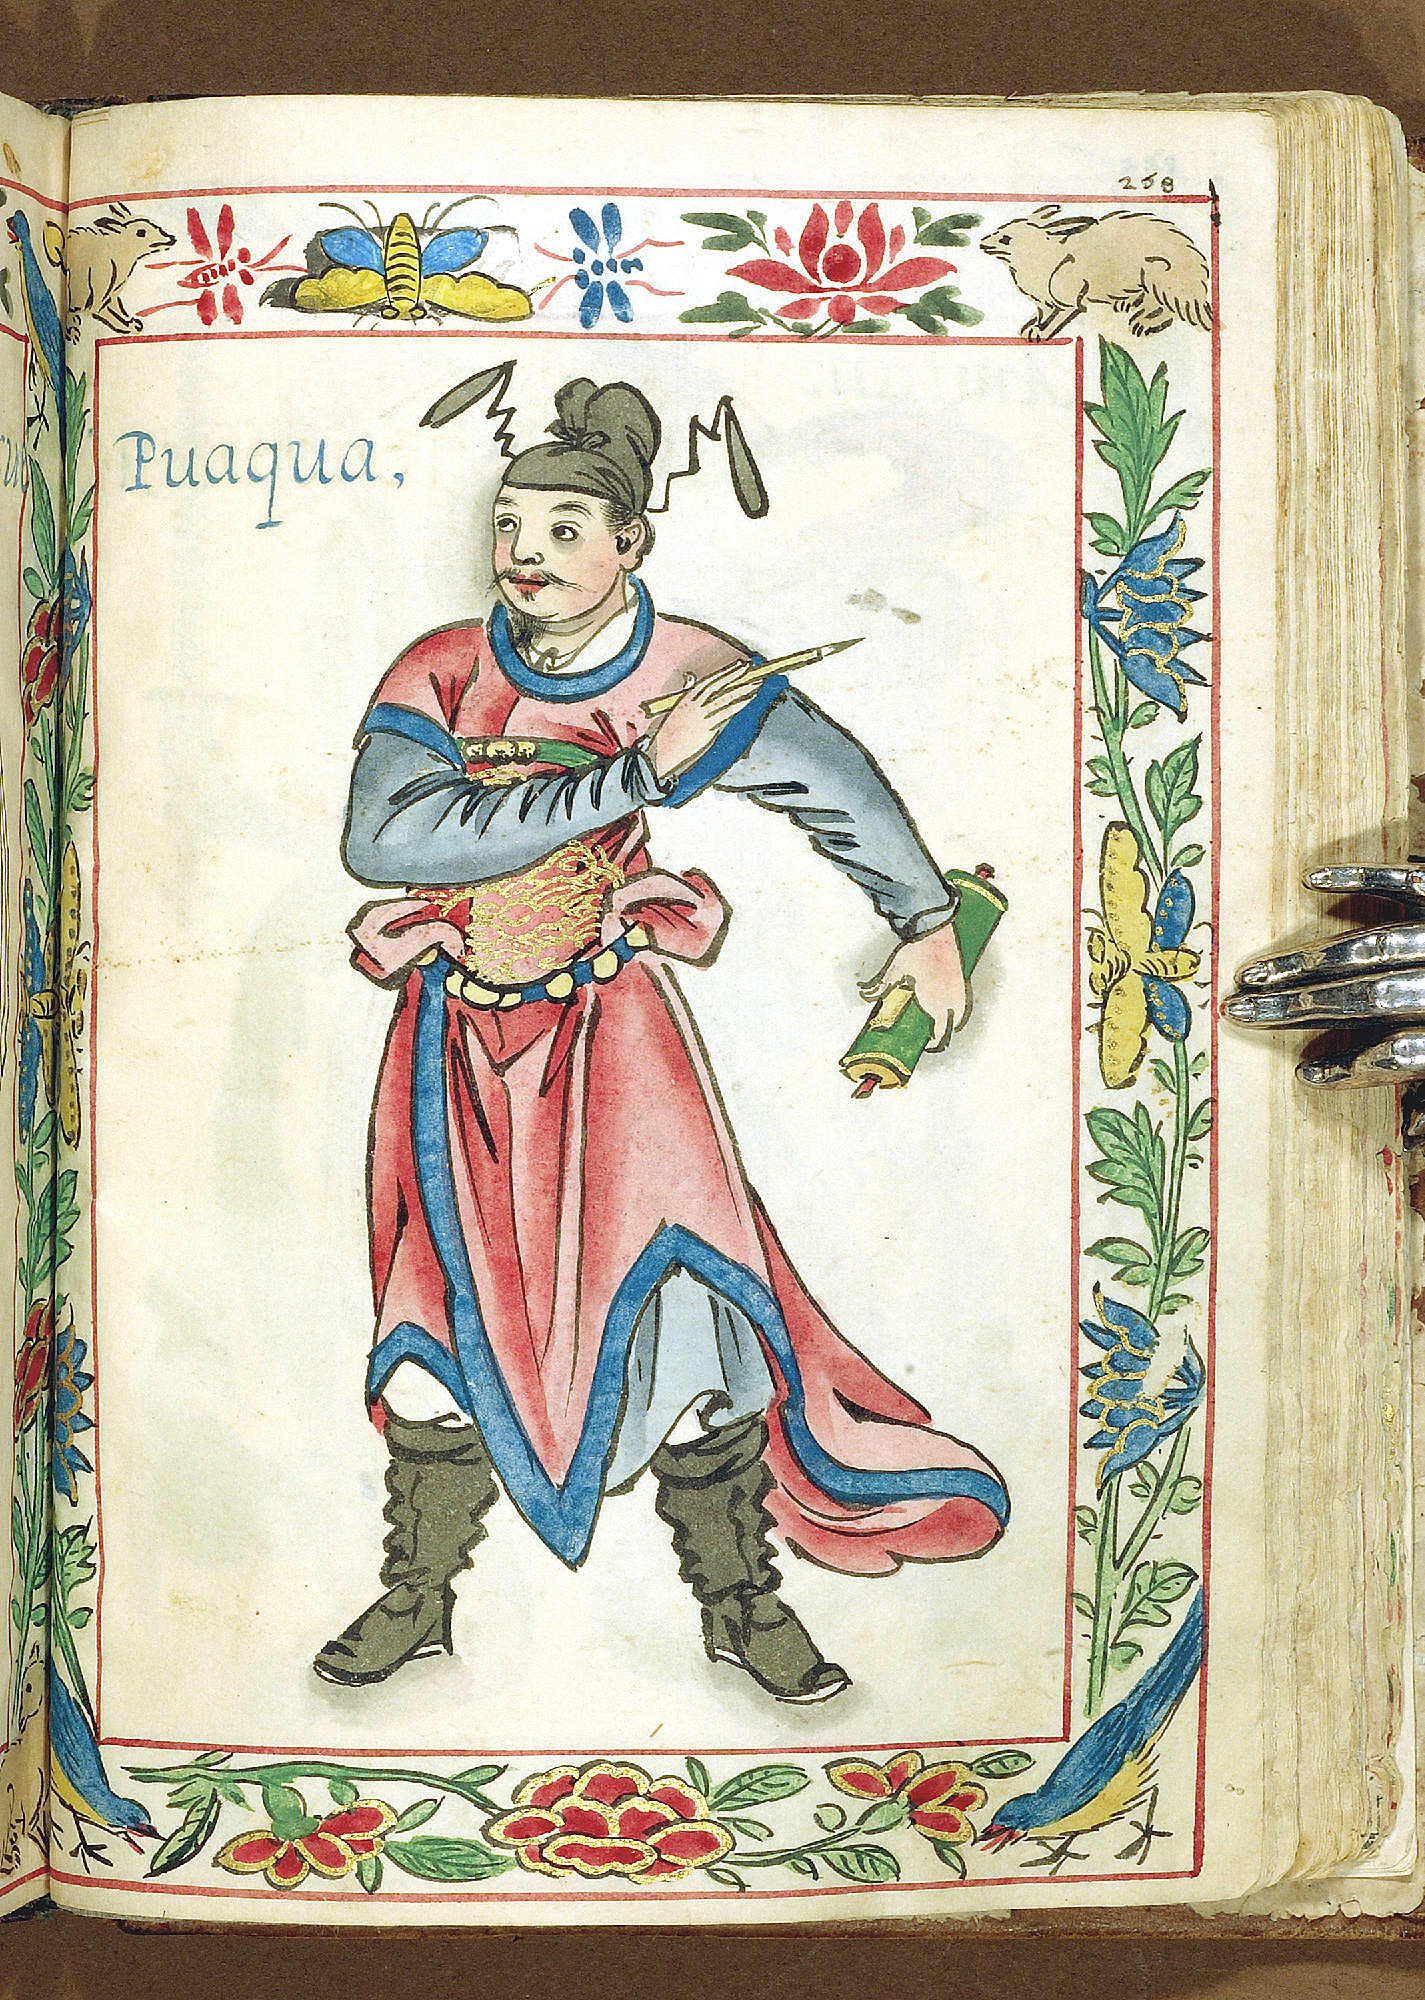 258
Puaqua,